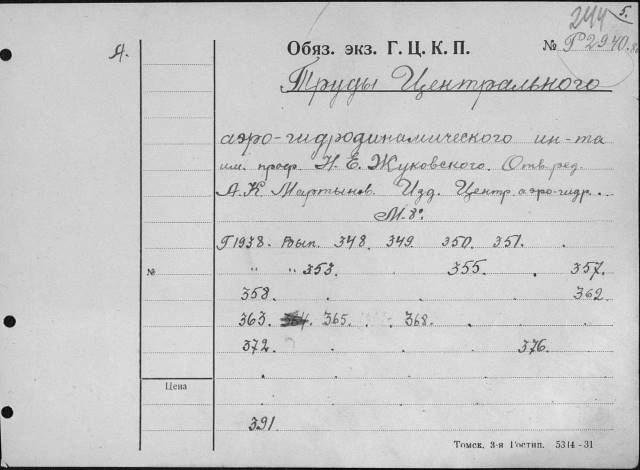 244 5.
А. Обяз. экз. Г. Ц. К. П. № Р2940
Труды Центрального
аэро-гидродинамического ин-та
им. проф. Н. Е. Жуковского. Отв. ред.
А. К. Мартынов. Изд. Центр. аэро-гидр. ..
М. 8°.
Г 1938. Вып. 348. 349. 350. 351. .
№ " " 353. . 355. . 357.
358. . . . 362.
363. 364. 365. . . 368. .
372. . . . 376.
Цена
391.
Томск. 3-я Гостип. 5314-31